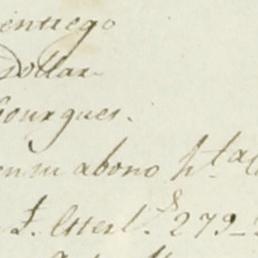 entrego
Dollar
Gourgues.
en su abono hta
£. Esterl.s 279_